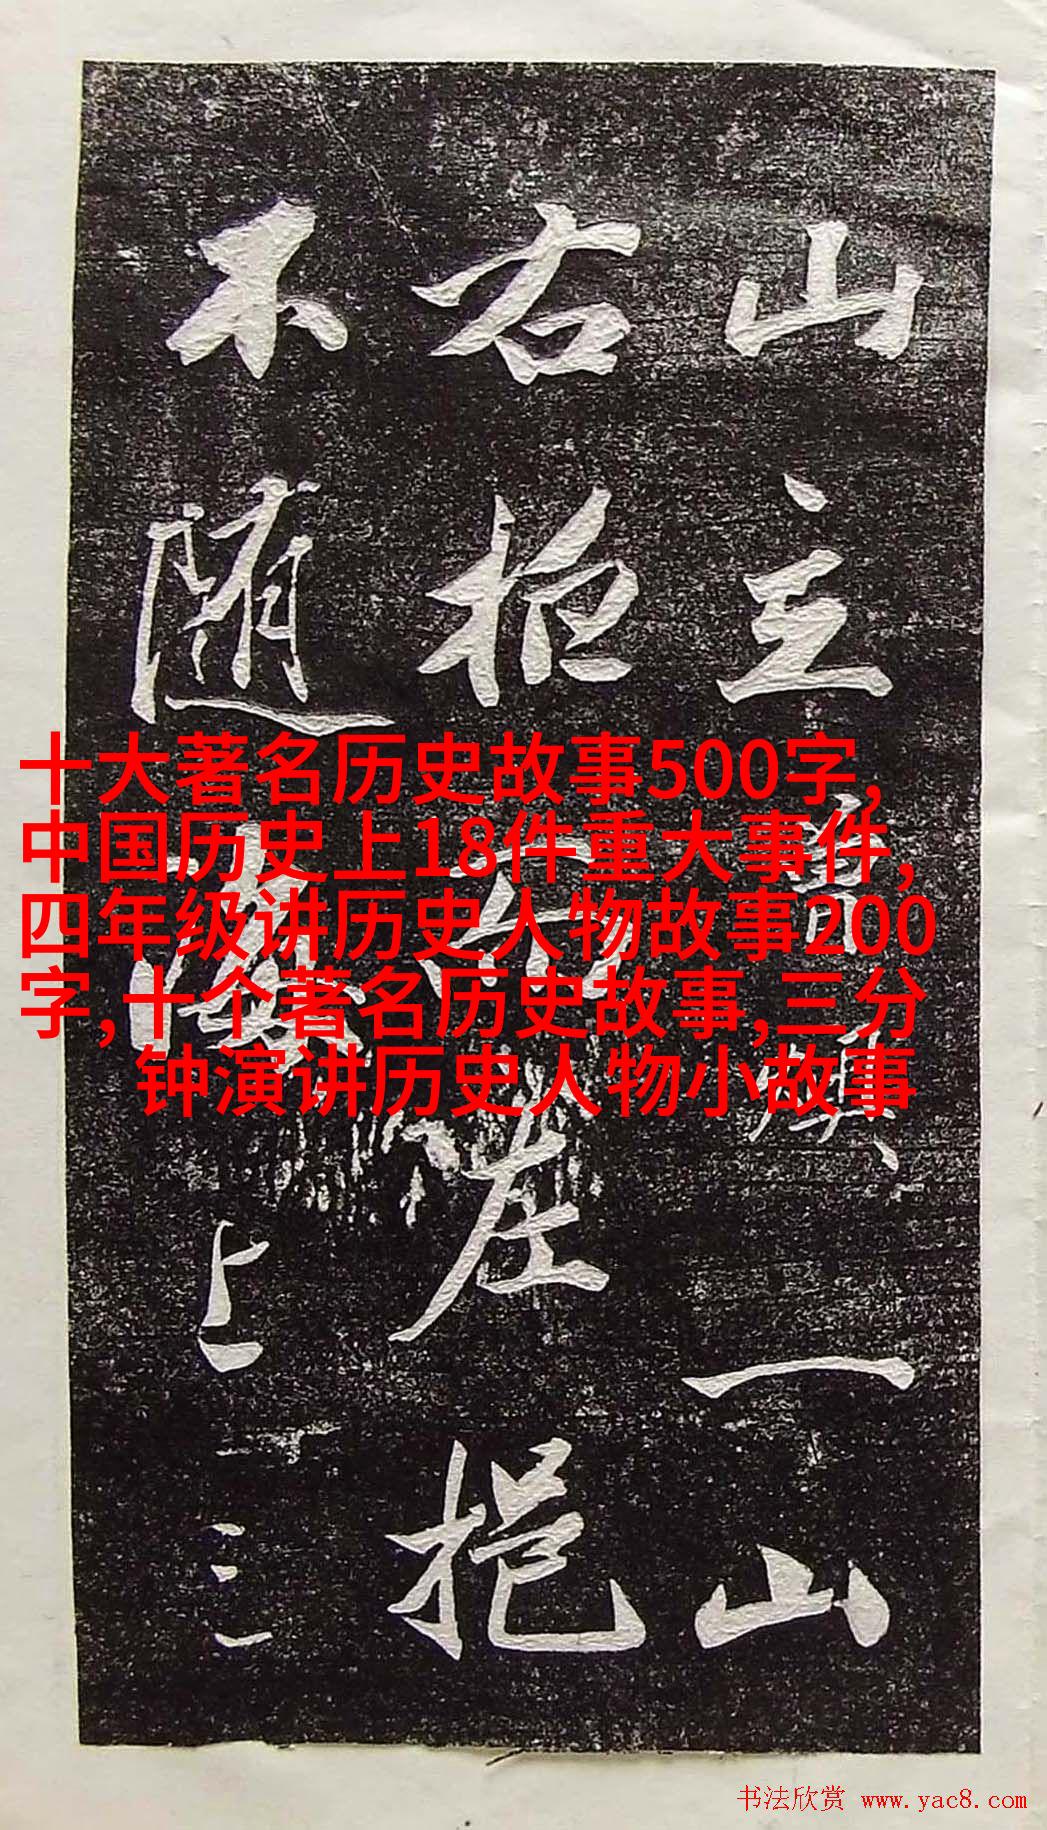 十大著名历史故事500字,
中国历史上18件重大事件,
四年级讲历史人物故事200
字,十个著名历史故事,三分
钟演讲历史人物小故事
山主一山
右左挹
不随上三
书法欣赏 www.yac8.com